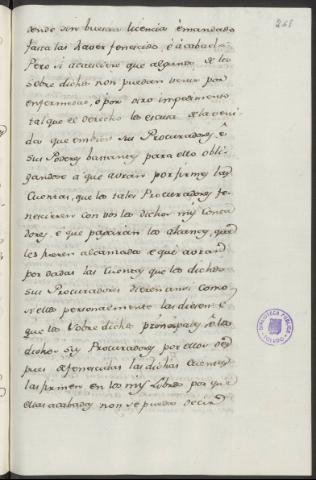 268
dendo sin buena licencia é mandado
fasta las haver fenescido, é acabado.
Pero si acaesciere que algunos de los
sobre dichos non puedan venir por
enfermedad, ó por otro impedimento
tal que el derecho los escusa de la veni-
da que embien sus Procuradores é
sus Poderes bastantes para ello obli-
gandose a que avrán por firmes las
Cuentas, que los tales Procuradores fe-
nescieren con vos los dichos mis Conta-
dores, é que pagarán los alcances, que
les fueren alcanzados é que avrán
por dadas las Cuentas que los dichos
sus Procuradores dieren asi como
si ellos personalmente las dieren é
que los sobre dichos principales ó los
dichos sus Procuradores por ellos des-
pues de fenescidas las dichas Cuentas
las firmen en los mis Libros por que
ellas acabadas non se puedan decir
BIBLIOTECA PUBLICA
TOLEDO